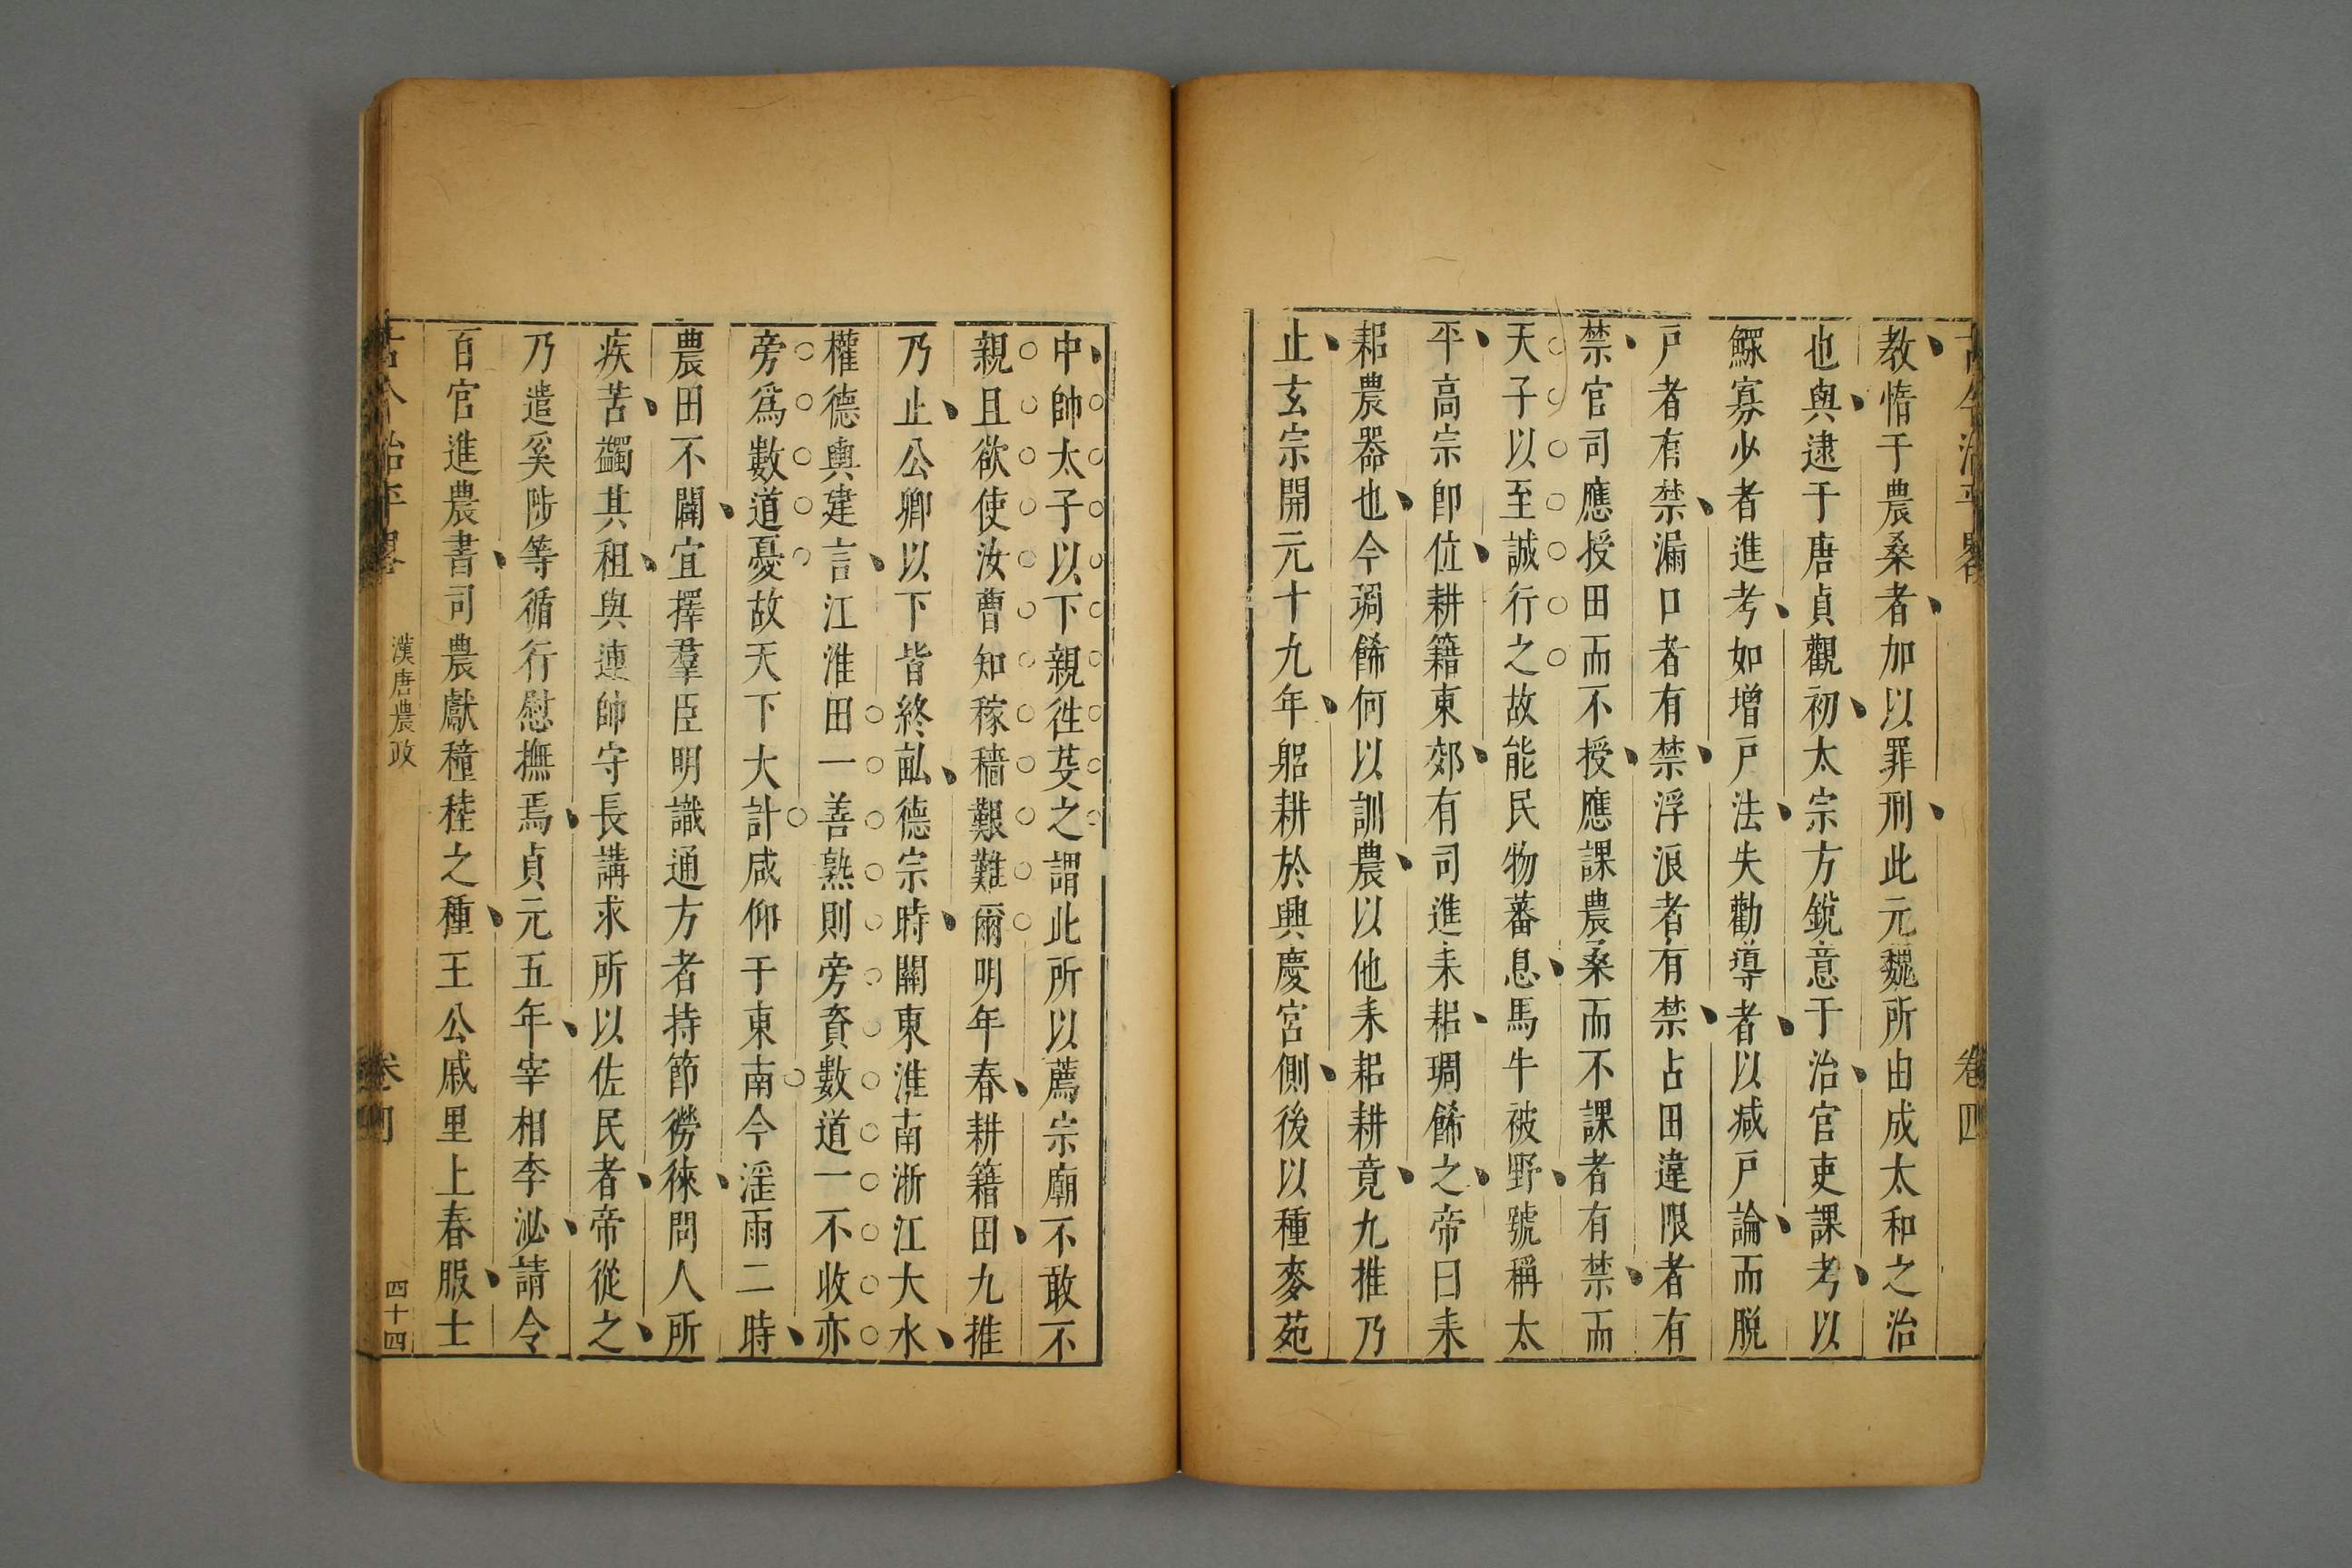 教惰于農桑者加以罪刑此元魏所由成太和之治
也與逮于唐貞觀初太宗方銳意于治官吏課考以
鰥寡少者進考如增戸法失勸導者以減戸論而脫
戸者有禁漏口者有禁浮浪者有禁占田違限者有
禁官司應授田而不授應課農桑而不課者有禁而
天子以至誠行之故能民物蕃息馬牛被野號稱太
平高宗卽位耕籍東郊有司進耒耜琱餙之帝曰耒
耜農器也今琱餙何以訓農以他耒耜耕竟九推乃
止玄宗開元十九年躬耕於興慶宮側後以種麥苑
中帥太子以下親徃芟之謂此所以薦宗廟不敢不
親且欲使汝曹知稼穡艱難爾明年春耕籍田九推
乃止公卿以下皆終畝德宗時關東淮南浙江大水
權德輿建言江淮田一善熟則旁資數道一不收亦
旁爲數道憂故天下大計咸仰于東南今淫雨二時
農田不闢宜擇羣臣明識通方者持節勞徠問人所
疾苦蠲其租與連帥守長講求所以佐民者帝從之
乃遣奚陟等循行慰撫焉貞元五年宰相李泌請令
百官進農書司農獻穜稑之種王公戚里上春服士
古今治平畧
漢唐農政
卷四
四十四